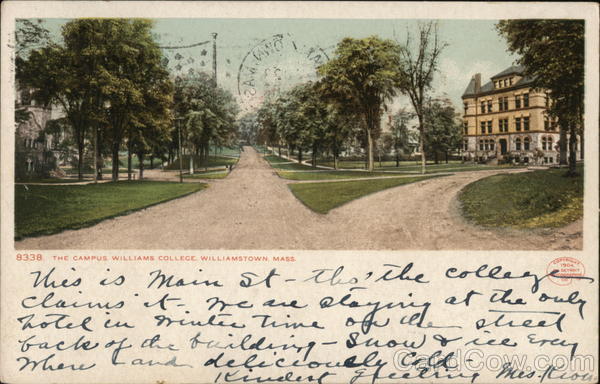 8338. THE CAMPUS, WILLIAMS COLLEGE, WILLIAMSTOWN, MASS.
COPYRIGHT 1904
This is Main St - tho' the college
claims it - We are staying at the only
hotel in winter time on the street
back of the building - Snow & ice Every
where - and deliciously Cold -
Kindest Greeting Mrs.
CardCow.com